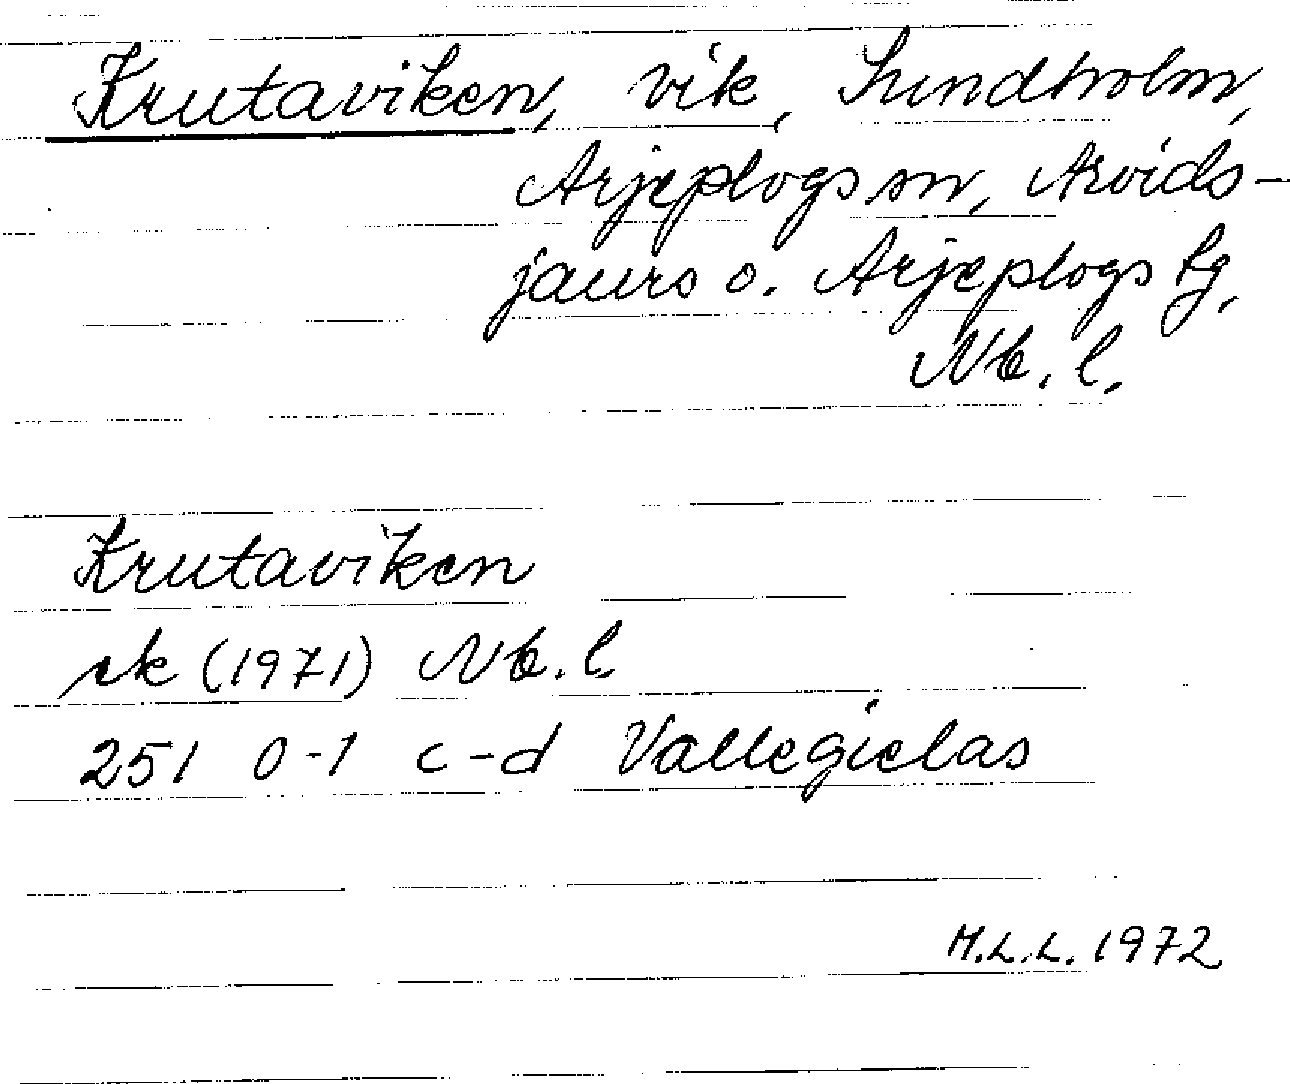 Krutaviken, vik, Sundholm,
Arjeplogs sn, Arvids-
jaurs o. Arjeplogs tg,
Nb. l.
Krutaviken
ek (1971) Nb. l.
251 0-1 c-d Vallegielas
M.L.L. 1972